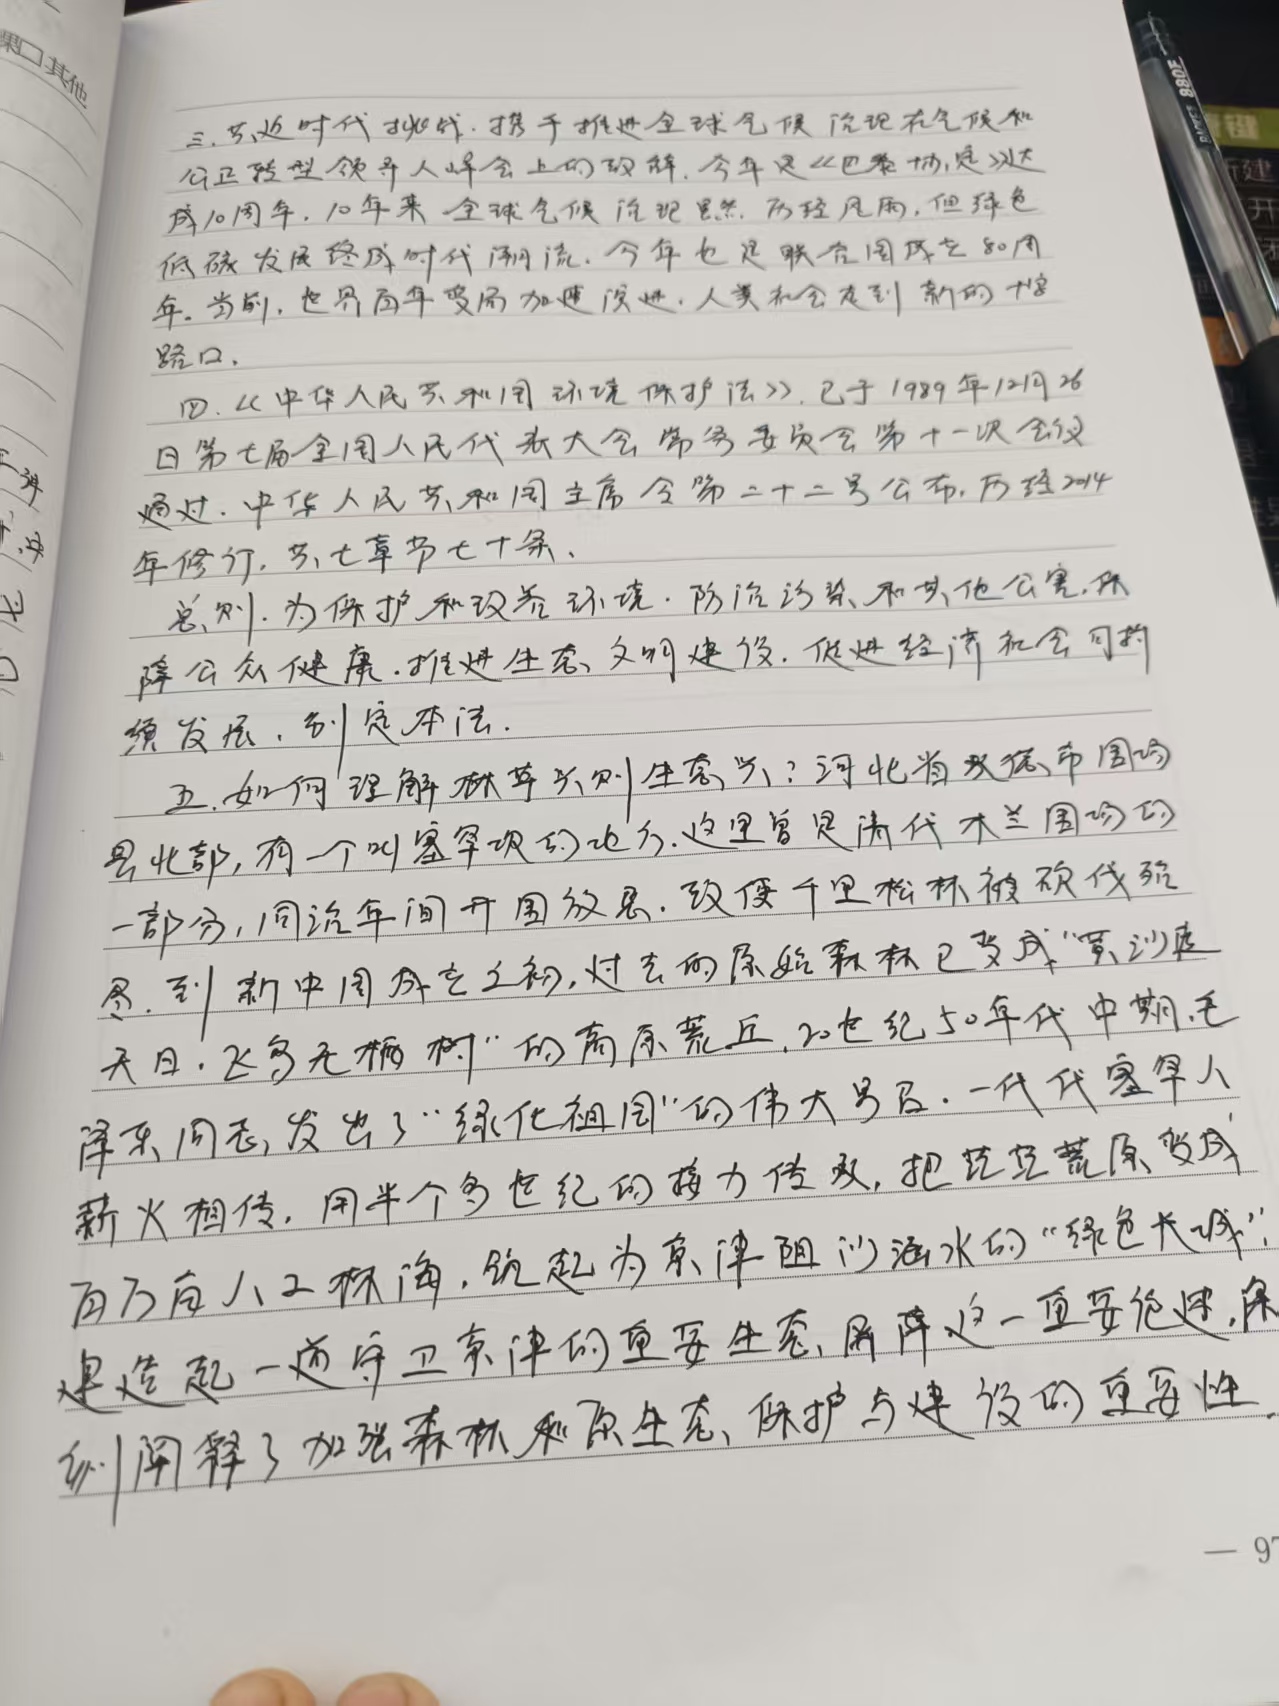 果口其他
三.共迎时代挑战.携手推进全球气候治理在气候和
公正转型领导人峰会上的致辞.今年是《巴黎协定》达
成10周年.10年来全球气候治理虽然历经风雨,但绿色
低碳发展终成时代潮流.今年也是联合国成立80周
年。当前,世界百年变局加速演进.人类社会走到新的十字
路口.
四.《中华人民共和国环境保护法》.已于1989年12月26
日第七届全国人民代表大会常务委员会第十一次会议
通过.中华人民共和国主席令第二十二号公布.历经2014
年修订.共七章节七十条.
总则.为保护和改善环境.防治污染和其他公害.保
障公众健康.推进生态文明建设.促进经济社会可持
续发展.制定本法.
五.如何理解林草兴则生态兴?河北省承德市围场
县北部,有一个叫塞罕坝的地方.这里曾是清代木兰围场的
一部分,同治年间开围放垦.致使千里松林被砍伐殆
尽.到新中国成立之初,过去的原始森林已变成"黄沙遮
天日.飞鸟无栖树"的高原荒丘.20世纪50年代中期.毛
泽东同志,发出了"绿化祖国"的伟大号召.一代代塞罕人
薪火相传.用半个多世纪的接力传承,把茫茫荒原变成
百万亩人工林海,筑起为京津阻沙涵水的"绿色长城".
建造起一道守卫京津的重要生态屏障这一重要论述.深
刻阐释了加强森林和原生态保护与建设的重要性.
— 97
880F